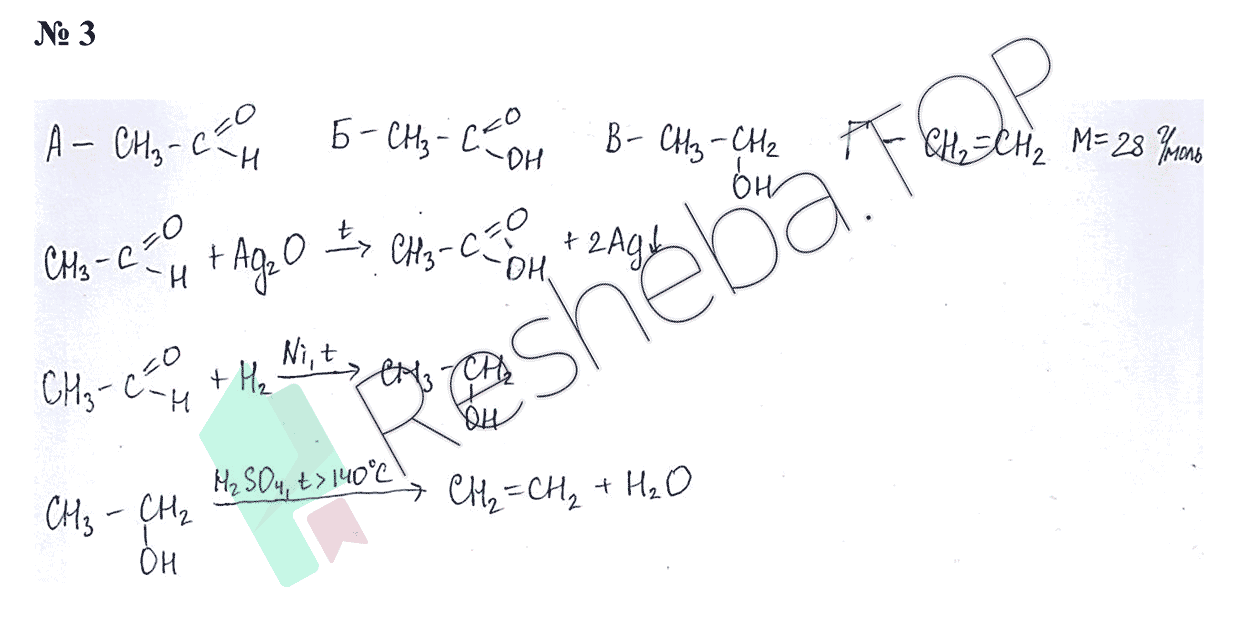 № 3
А – CH₃–C=O–H Б – CH₃–C=O–OH В – CH₃–CH₂–OH Г – CH₂=CH₂ M=28 г/моль
CH₃–C=O–H + Ag₂O t→ CH₃–C=O–OH + 2Ag↓
CH₃–C=O–H + H₂ Ni, t→ CH₃–CH₂–OH
CH₃–CH₂–OH H₂SO₄, t>140°C→ CH₂=CH₂ + H₂O
Resheba.TOP